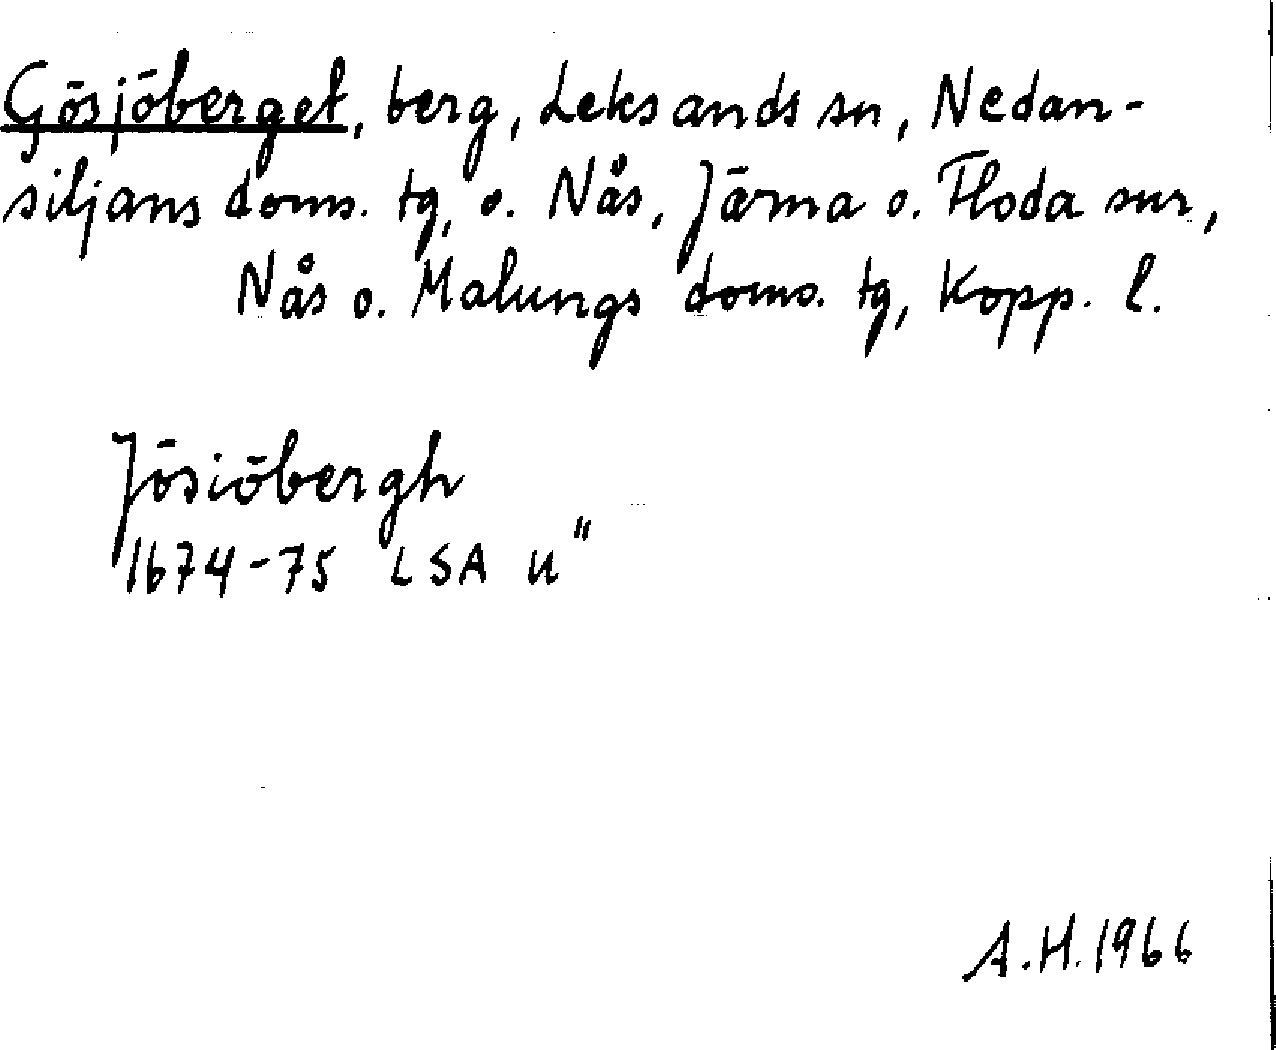 Gösjöberget, berg, Leksands sn, Nedan-
siljans doms. tg, o. Nås, Järna o. Floda snr,
Nås o. Malungs doms. tg, Kopp. l.
Jösiöbergh
1674-75 LSA U"
A.H.1966